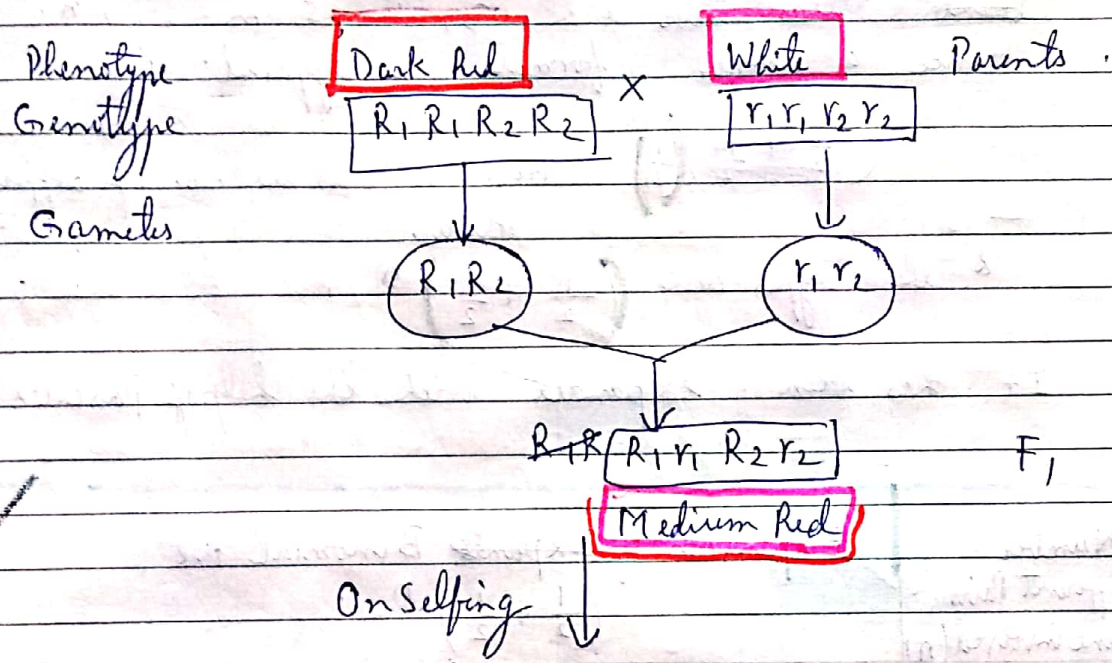 Phenotype Dark Red White Parents.
Genotype R₁ R₁ R₂ R₂ × r₁ r₁ r₂ r₂
Gametes
R₁ R₂ r₁ r₂
R₁R R₁ r₁ R₂ r₂ F₁
Medium Red
On Selfing